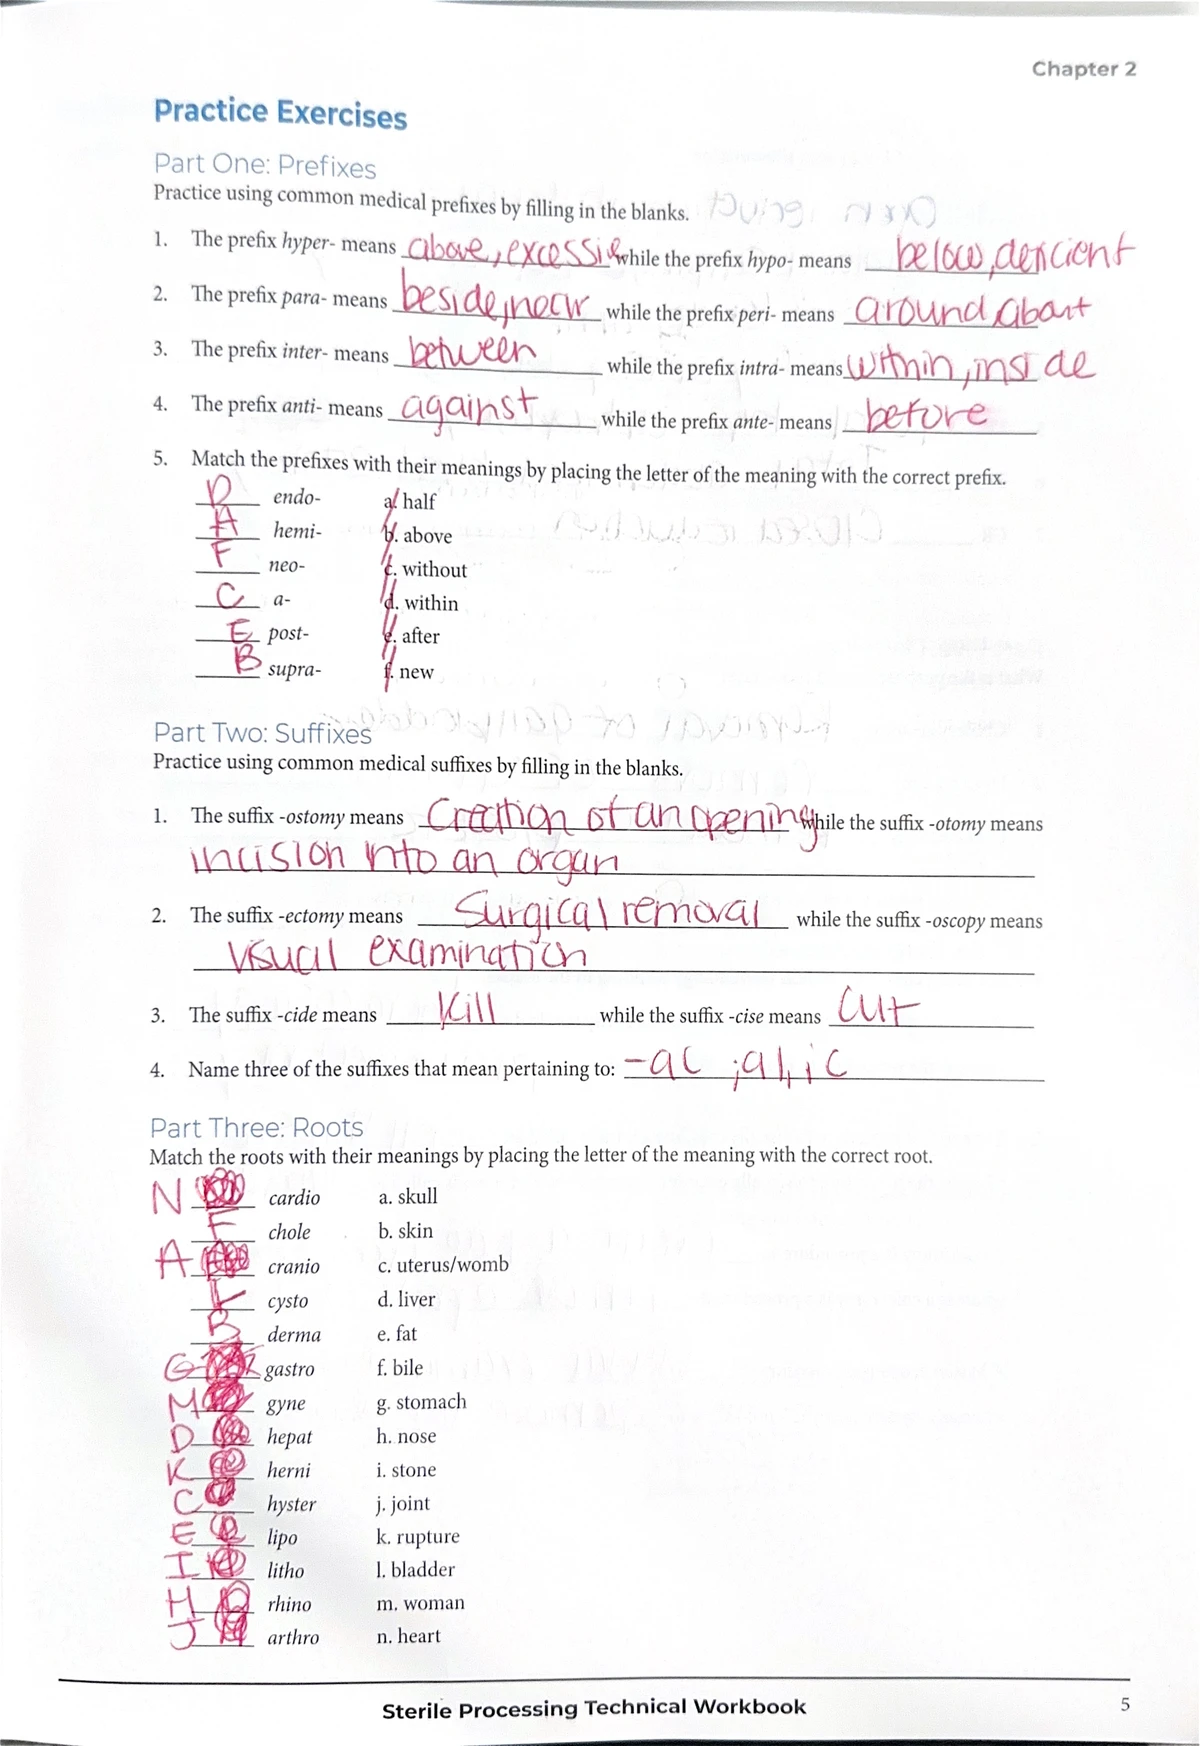 Chapter 2
Practice Exercises
Part One: Prefixes
Practice using common medical prefixes by filling in the blanks.
1. The prefix hyper- means above, excessive while the prefix hypo- means below, deficient
2. The prefix para- means beside, near while the prefix peri- means around, about
3. The prefix inter- means between while the prefix intra- means within, inside
4. The prefix anti- means against while the prefix ante- means before
5. Match the prefixes with their meanings by placing the letter of the meaning with the correct prefix.
D endo- a. half
A hemi- b. above
F neo- c. without
C a- d. within
E post- e. after
B supra- f. new
Part Two: Suffixes
Practice using common medical suffixes by filling in the blanks.
1. The suffix -ostomy means Creation of an opening while the suffix -otomy means
incision into an organ
2. The suffix -ectomy means Surgical removal while the suffix -oscopy means
visual examination
3. The suffix -cide means Kill while the suffix -cise means cut
4. Name three of the suffixes that mean pertaining to: -ac, al, ic
Part Three: Roots
Match the roots with their meanings by placing the letter of the meaning with the correct root.
N cardio a. skull
F chole b. skin
A cranio c. uterus/womb
L cysto d. liver
B derma e. fat
G gastro f. bile
M gyne g. stomach
D hepat h. nose
K herni i. stone
C hyster j. joint
E lipo k. rupture
I litho l. bladder
H rhino m. woman
J arthro n. heart
Sterile Processing Technical Workbook 5